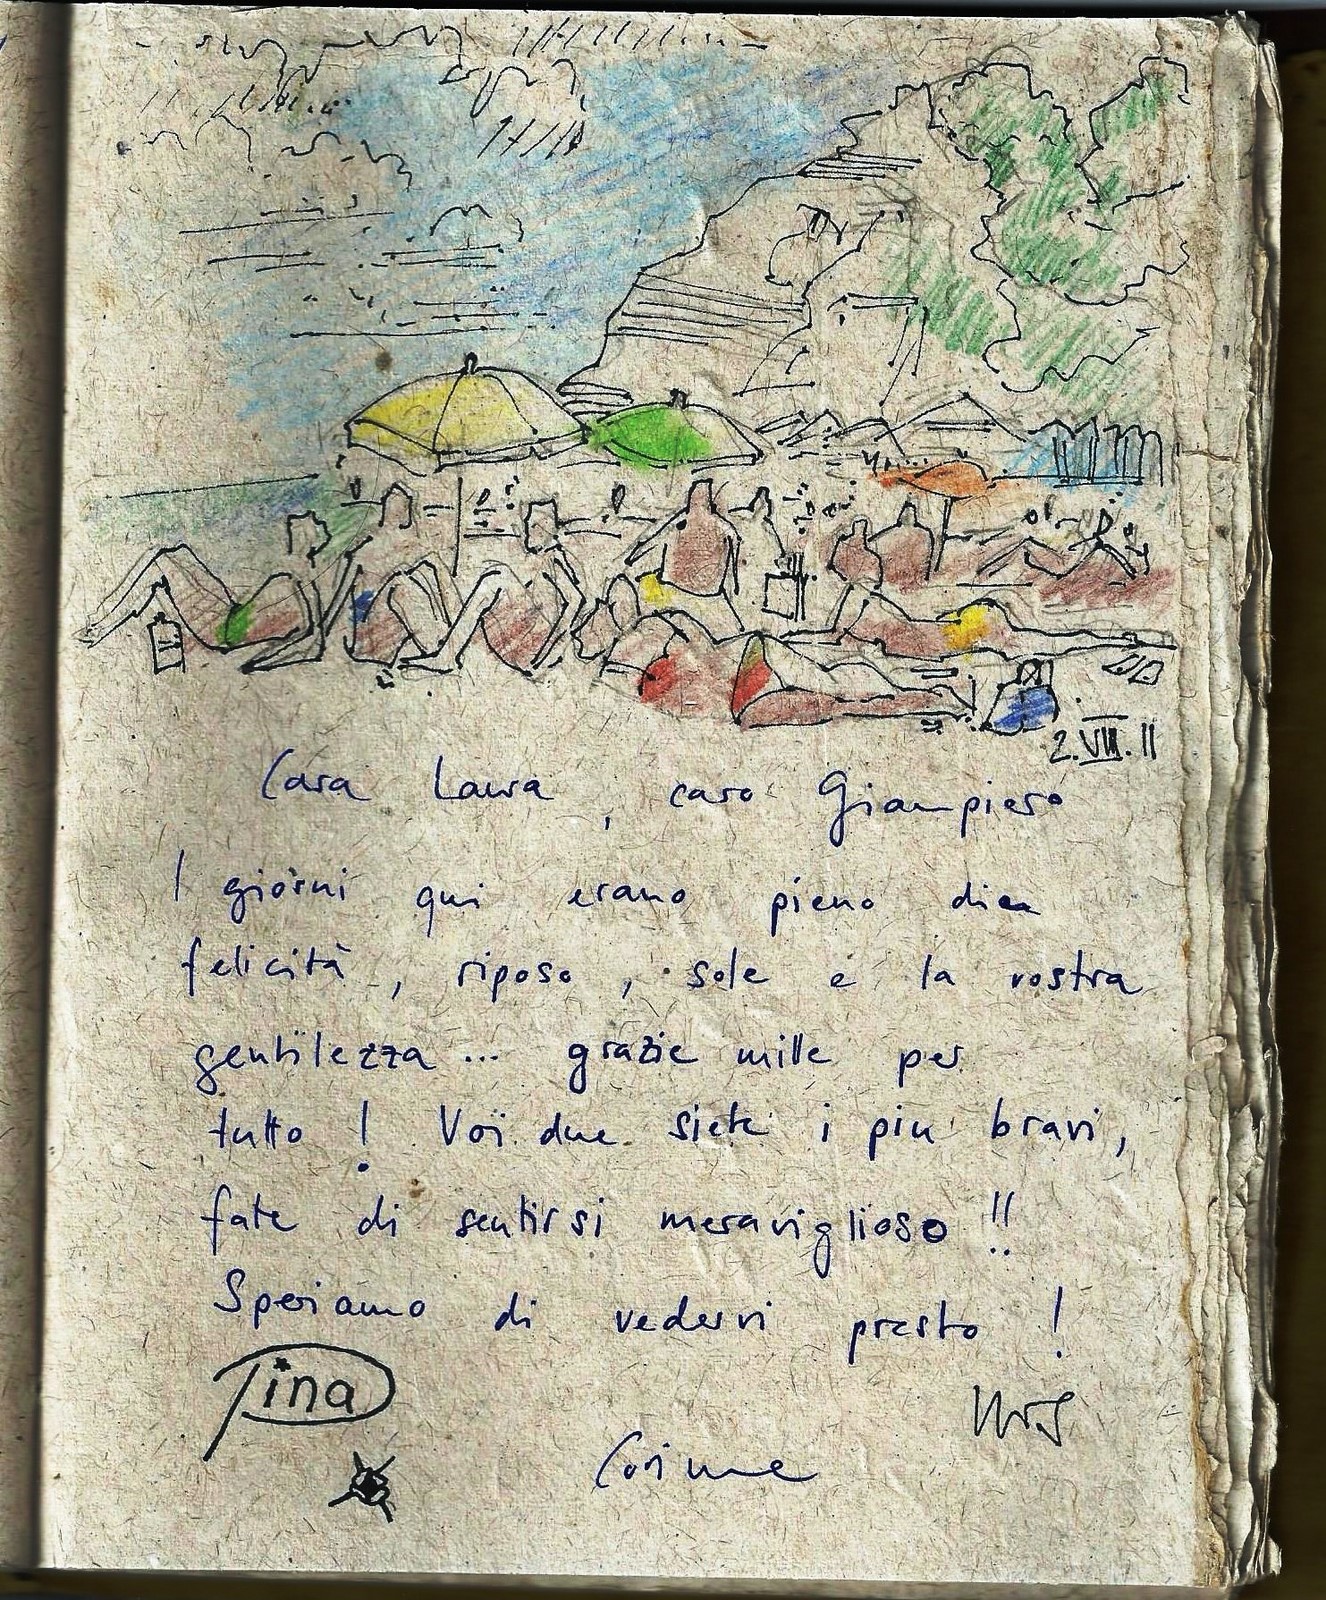 2.VII.11
Cara Laura, caro Giampiero
I giorni qui erano pieno di
felicità, riposo, sole e la vostra
gentilezza ... grazie mille per
tutto! Voi due siete i piu bravi,
fate di sentirsi meraviglioso!!
Speriamo di vedervi presto!
Tina
Corinne